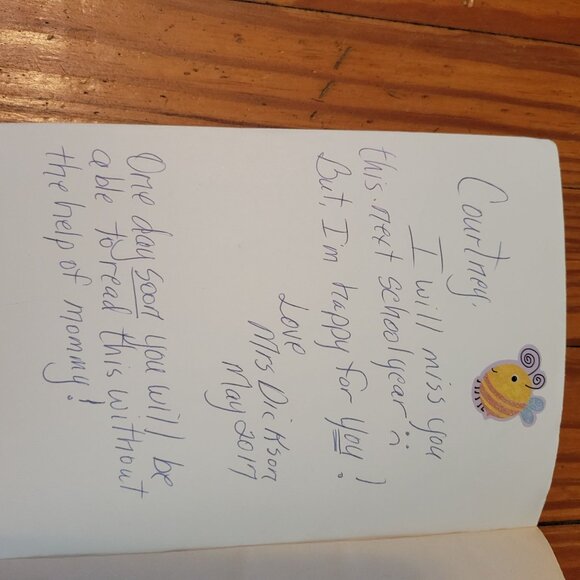 Courtney,
I will miss you
this next school year ¨̑
But, I'm happy for you!
Love
Mrs Dickson
May 2017
One day soon you will be
able to read this without
the help of mommy!